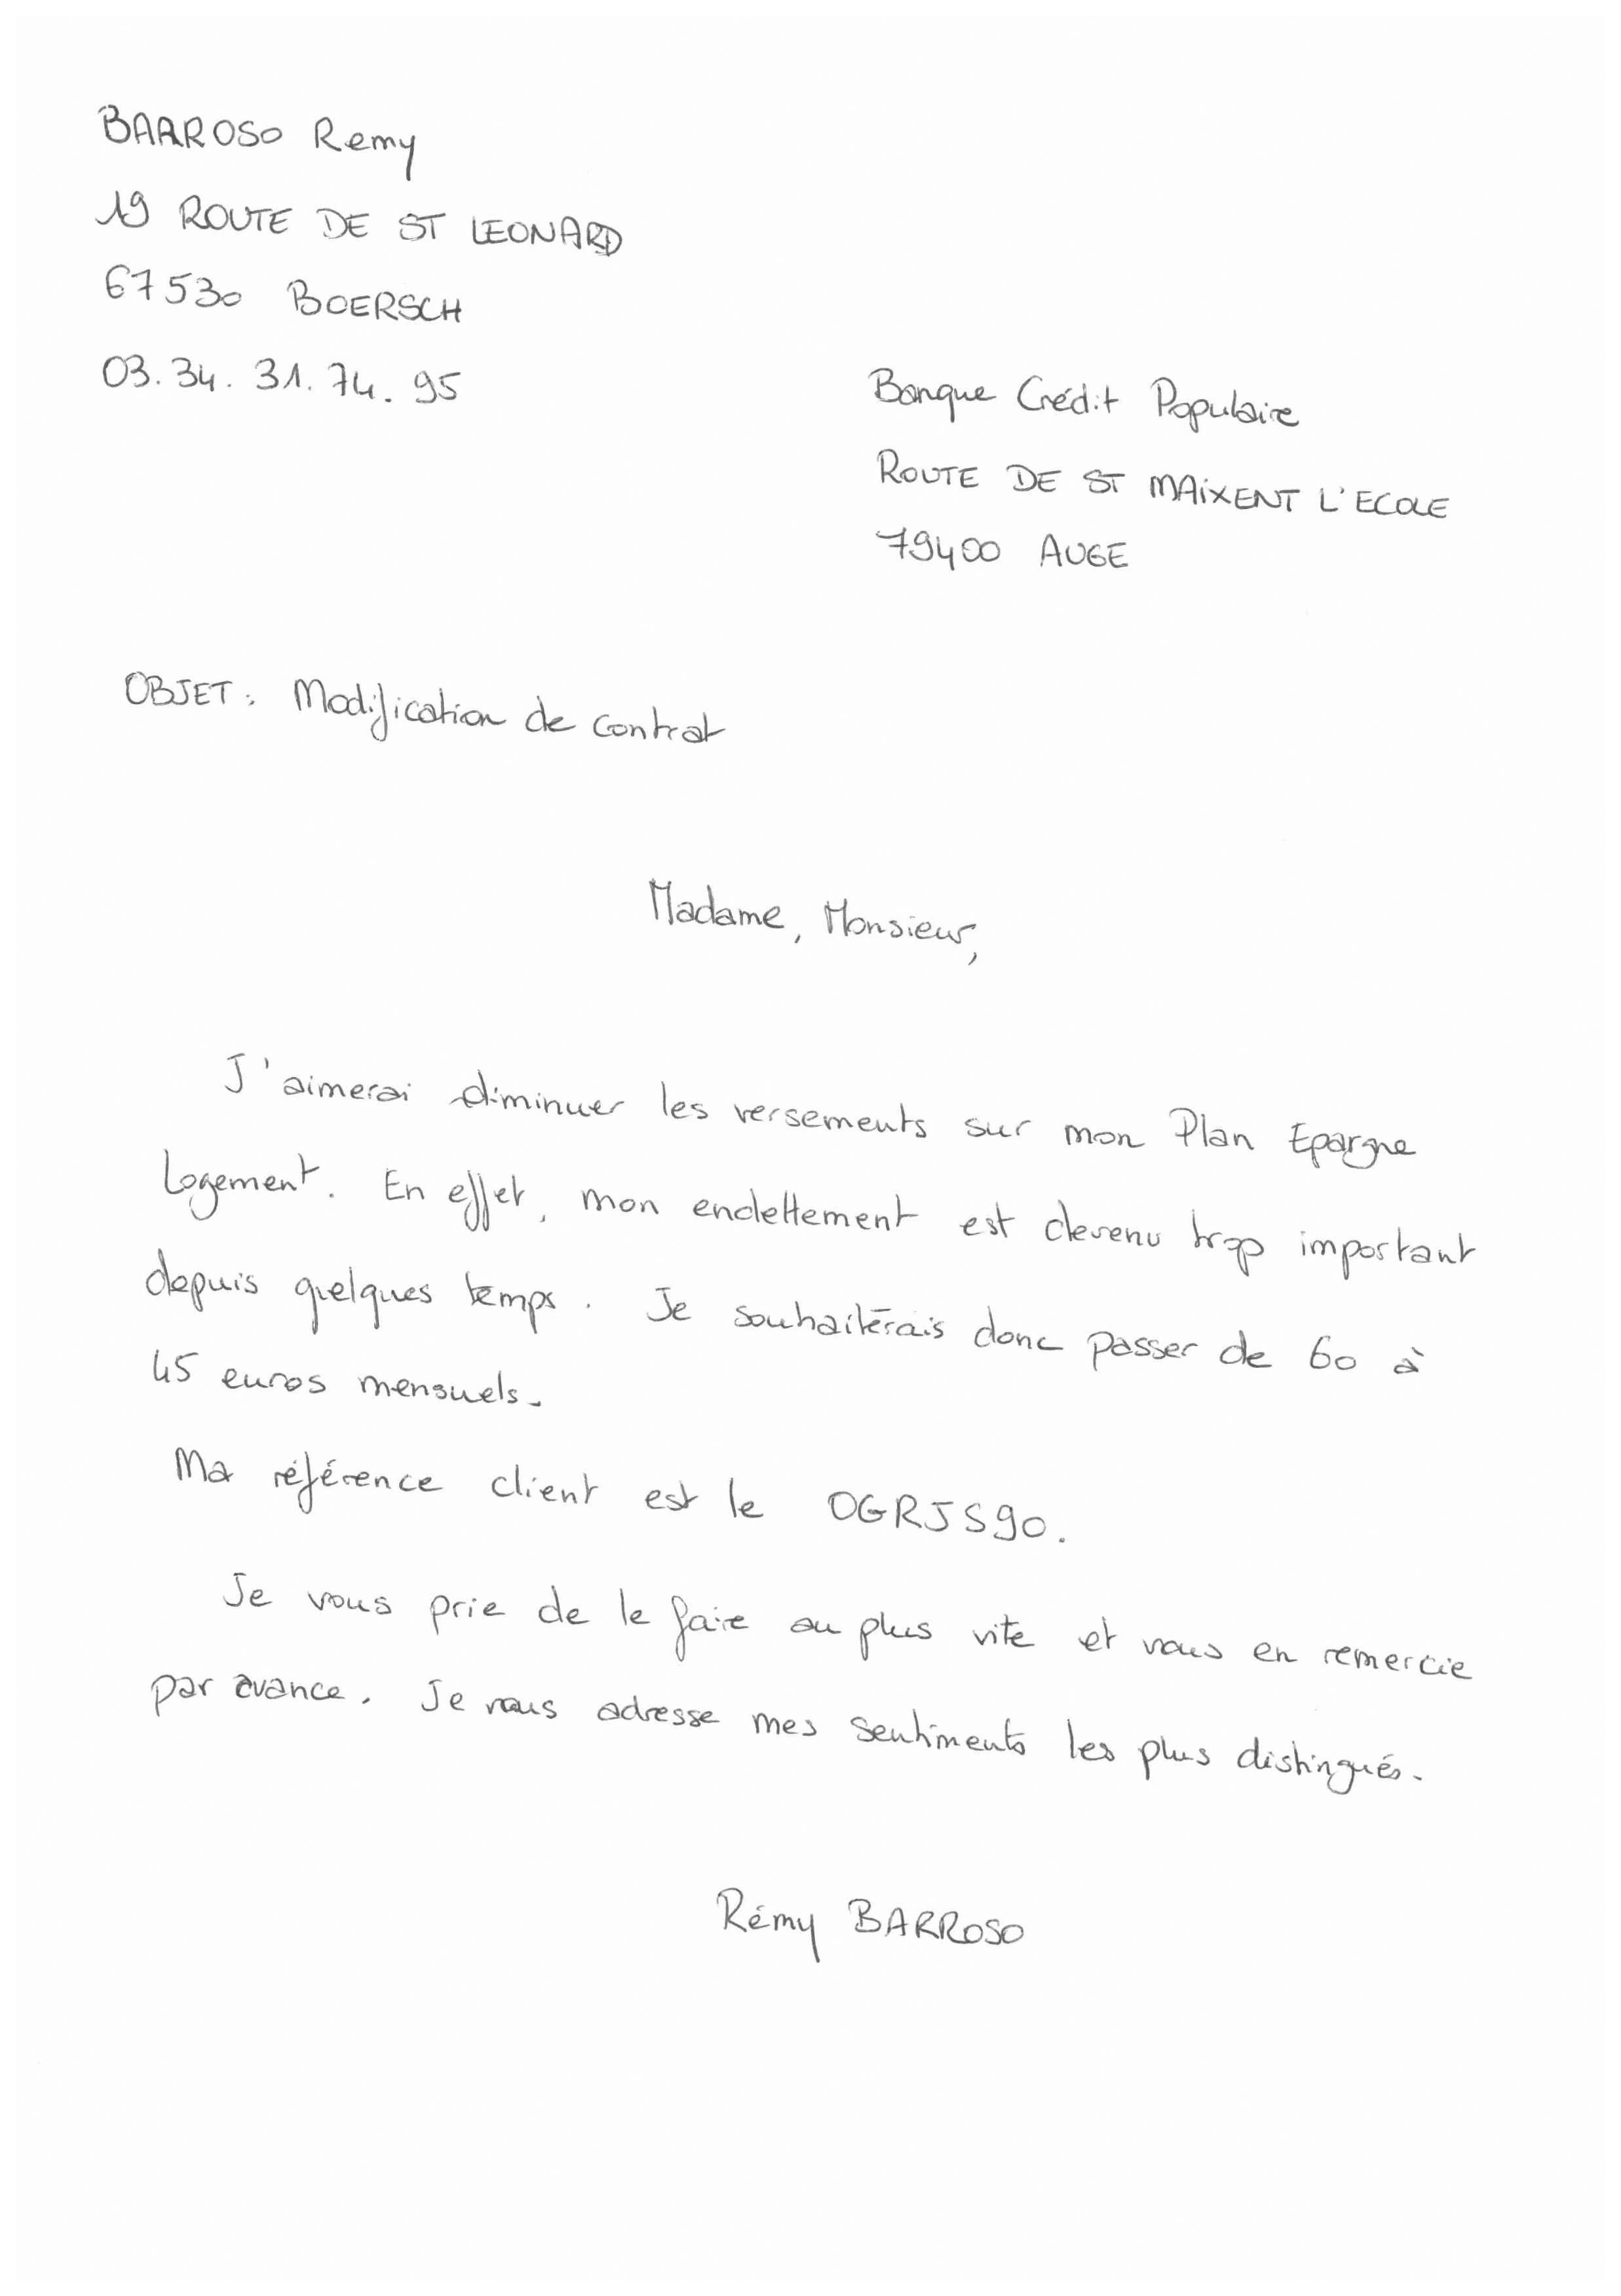 BARROSO Remy
19 ROUTE DE ST LEONARD
67530 BOERSCH
03.34.31.74.95
Banque Crédit Populaire
ROUTE DE ST MAIXENT L'ECOLE
79400 AUGE
OBJET : Modification de contrat
Madame, Monsieur,
J'aimerai diminuer les versements sur mon Plan Epargne
Logement. En effet, mon endettement est devenu trop important
depuis quelques temps. Je souhaiterais donc passer de 60 à
45 euros mensuels.
Ma référence client est le OGRJS90.
Je vous prie de le faire au plus vite et vous en remercie
par avance. Je vous adresse mes sentiments les plus distingués.
Rémy BARROSO